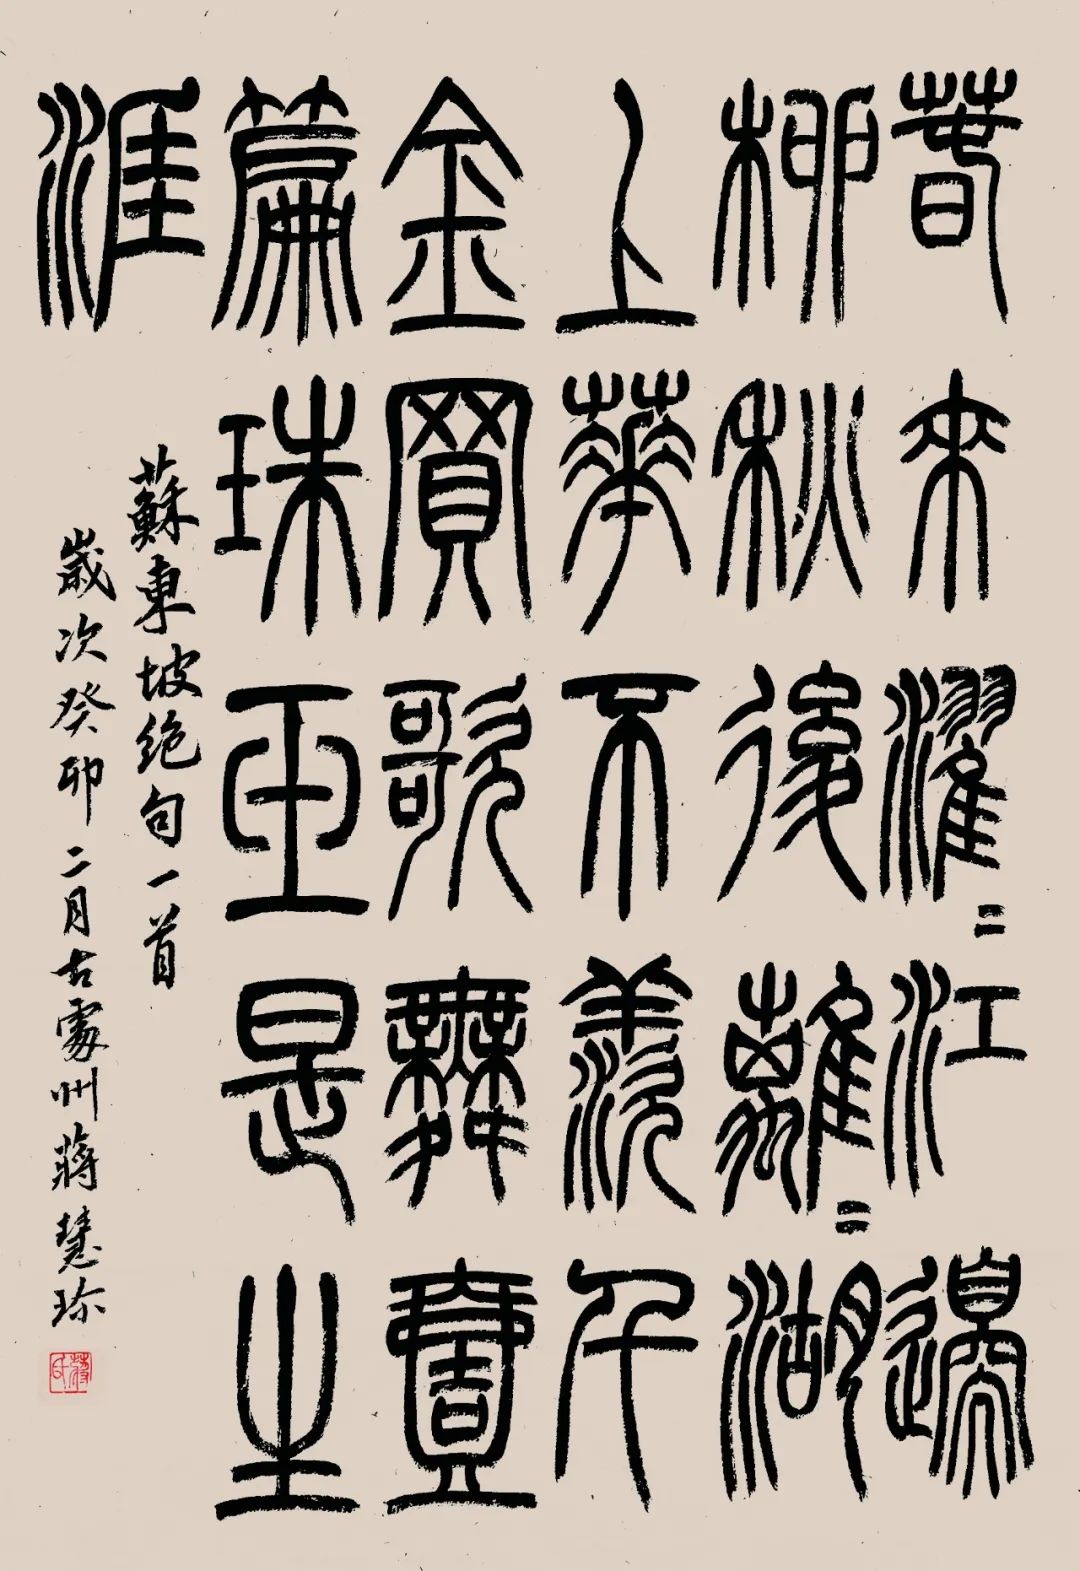 春來濯〻江邊
柳秋後離〻湖
上華不羨千
金買歌舞壹
篇珠玉是生
涯
蘇東坡絕句一首
歲次癸卯二月古處州蔣慧珍